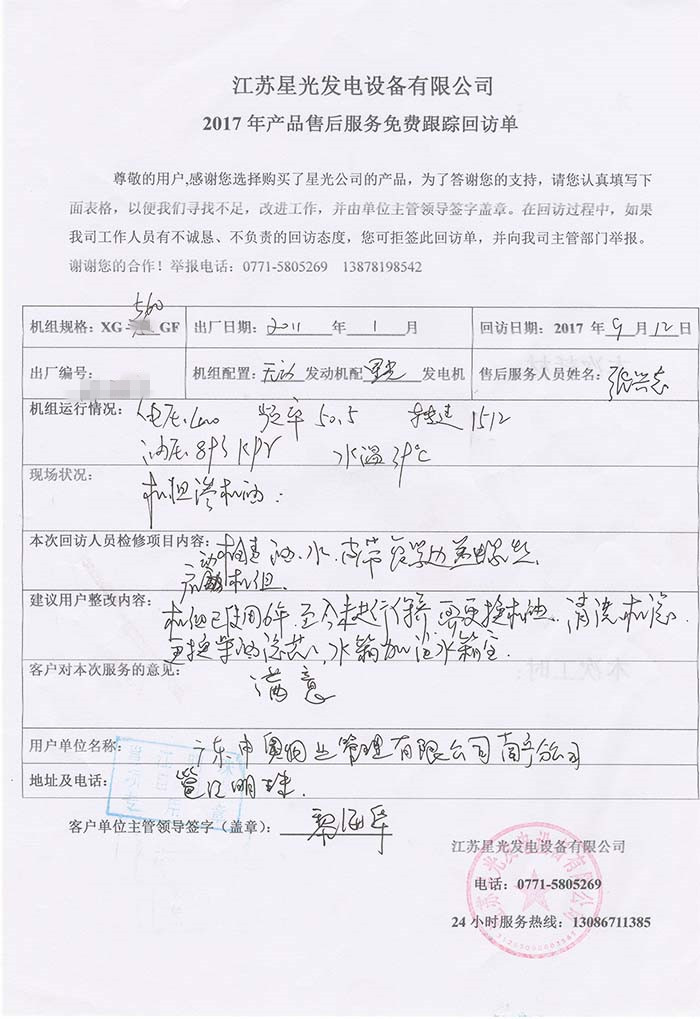 江苏星光发电设备有限公司
2017 年产品售后服务免费跟踪回访单
尊敬的用户,感谢您选择购买了星光公司的产品，为了答谢您的支持，请您认真填写下
面表格，以便我们寻找不足，改进工作，并由单位主管领导签字盖章。在回访过程中，如果
我司工作人员有不诚恳、不负责的回访态度，您可拒签此回访单，并向我司主管部门举报。
谢谢您的合作！举报电话：0771-5805269 13878198542
560
机组规格：XG- GF 出厂日期：2011 年 1 月 回访日期：2017 年 9 月 12 日
出厂编号： 机组配置：无动 发动机配 星光 发电机 售后服务人员姓名：张兴志
机组运行情况：电压 400 频率 50.5 转速 1512
油压 kpa 水温 ℃
现场状况：
机组渗机油.
本次回访人员检修项目内容：检查油.水.皮带
启动机组.
建议用户整改内容：机组已使用6年.至今未进行保养 要更换机油.清洗机滤.
更换柴油滤芯,水箱加注水箱宝.
客户对本次服务的意见：
满意
用户单位名称： 广东中奥物业管理有限公司南宁分公司
地址及电话： 邕江明珠.
客户单位主管领导签字（盖章）：
江苏星光发电设备有限公司
电话：0771-5805269
24 小时服务热线：13086711385